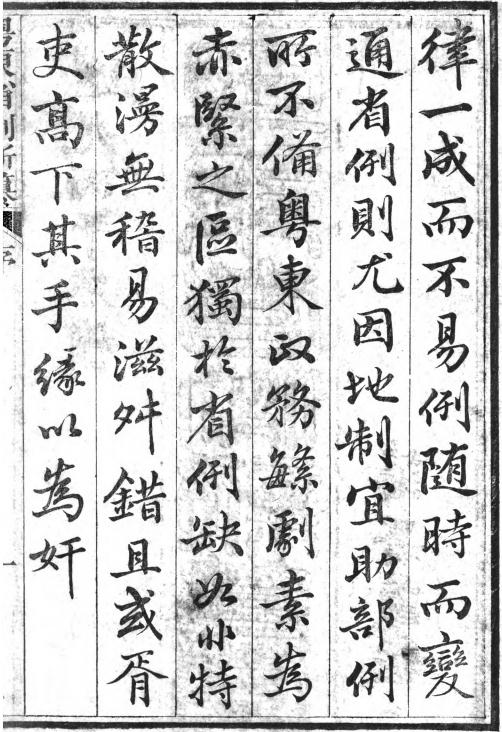 律一成而不易例随時而變
通省例則尤因地制宜助部例
所不備粤東政務繁劇素為
赤緊之區獨於省例缺如非特
散漫無稽易滋舛錯且或胥
吏高下其手緣以為奸
粤東省例新纂
序
一